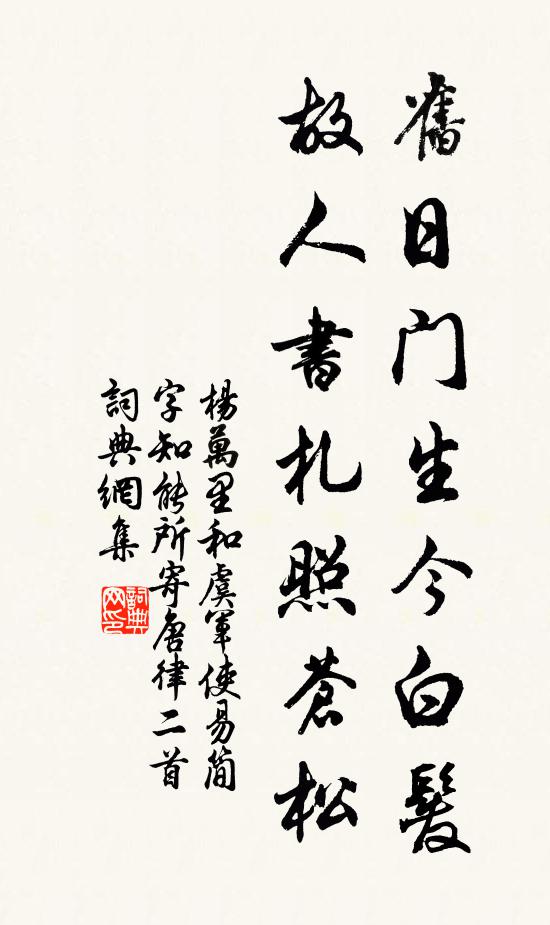 舊日門生今白髮
故人書札照蒼松
楊萬里和虞軍使易簡
字知能所寄唐律二首
詞典網集
詞典网印